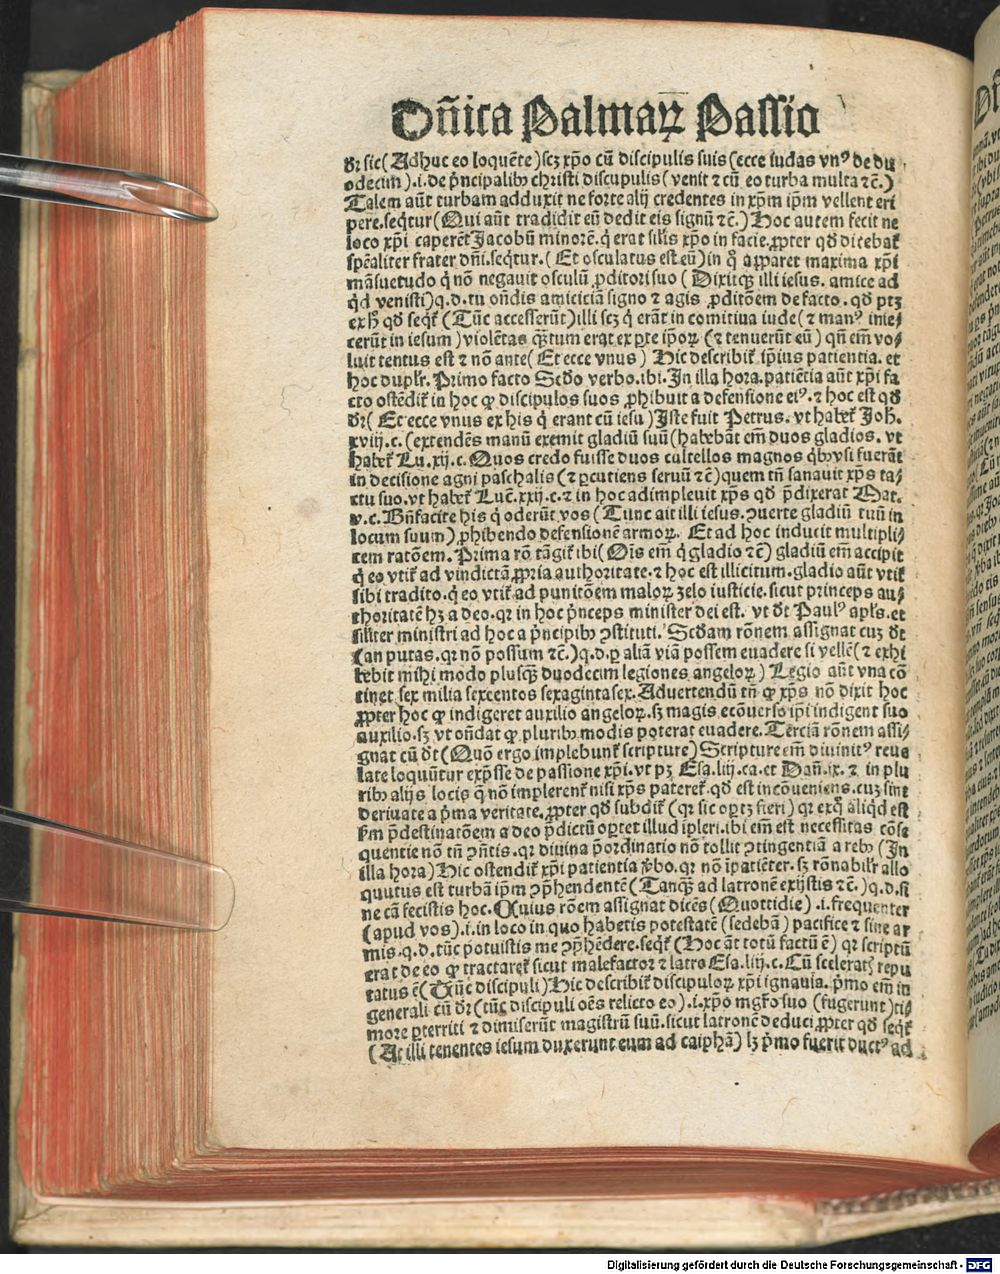 Dñica Palmaꝝ Passio
dr̄ sic (Adhuc eo loquēte) scꝫ xp̄o cū discipulis suis (ecce iudas vnꝰ de du
odecim).i.de p̄ncipalibꝰ christi discupulis (venit ⁊ cū eo turba multa ⁊c̄.)
Talem aūt turbam adduxit ne forte alij credentes in xp̄m ip̄m vellent eri
pere.seqtur (Qui aūt tradidit eū dedit eis signū ⁊c̄.) Hoc autem fecit ne
loco xp̄i caperēt Jacobū minorē.q̇ erat silis xp̄o in facie.ꝓpter qd̄ dicebat̄
spēaliter frater dn̄i.seqtur.(Et osculatus est eū) in q̊ apparet maxima xp̄i
māsuetudo q̇ nō negauit osculū ꝓditori suo (Dixitqꝫ illi iesus. amice ad
qd̄ venisti) q.d.tu on̄dis amiciciā signo ⁊ agis ꝓditōem de facto.qd̄ ptꝫ
ex hͦ qd̄ seqr̄ (Tūc accesserūt) illi scꝫ q̇ erāt in comitiua iude (⁊ manꝰ inie⸗
cerūt in iesum) violētas qꝫtum erat ex ꝑte ip̄oꝝ (⁊ tenuerūt eū) qn̄ em̄ vo⸗
luit tentus est ⁊ nō ante (Et ecce vnus) Hic describit̄ ip̄ius patientia. et
hoc duplr̄. Primo facto Scd̄o verbo.ibi.In illa hora.patiētia aūt xp̄i fa
cto ostēdit̄ in hoc ꝙ discipulos suos ꝓhibuit a defensione eiꝰ.⁊ hoc est qd̄
dr̄ (Et ecce vnus ex his q̇ erant cū iesu) Iste fuit Petrus. vt habet̄ Joh̄.
xviij.c.(extendēs manū exemit gladiū suū (habebāt em̄ duos gladios. vt
habet̄ Lu.xij.c.Quos credo fuisse duos cultellos magnos qͥbꝰ vsi fuerāt
in decisione agni paschalis (⁊ ꝑcutiens seruū ⁊c̄) quem tn̄ sanauit xp̄s ta⸗
ctu suo.vt habet̄ Luc̄.xxij.c.⁊ in hoc adimpleuit xp̄s qd̄ p̄dixerat Mat.
v.c.Bn̄facite his q̇ oderūt vos (Tunc ait illi iesus.ↄuerte gladiū tuū in
locum suum) ꝓhibendo defensionē armoꝝ. Et ad hoc inducit multipli⸗
cem ratōem. Prima rō tāgit̄ ibi (Oīs em̄ q̇ gladio ⁊c̄) gladiū em̄ accipit
q̇ eo vtit̄ ad vindictā ꝓpria authoritate.⁊ hoc est illicitum.gladio aūt vtit̄
sibi tradito.q̇ eo vtit̄ ad punitōem maloꝝ zelo iusticie.sicut princeps au⸗
thoritatē hꝫ a deo.qr in hoc p̄nceps minister dei est. vt dt̄ Paulꝰ apl̄s.et
siliter ministri ad hoc a p̄ncipibꝰ ↄstituti. Scd̄am rōnem assignat cuꝫ dt̄
(an putas.qr non possum ⁊c̄.) q.d.ꝑ aliā viā possem euadere si vellē (⁊ exhi
bebit mihi modo plusqꝫ duodecim legiones angeloꝝ) Legio aūt vna cō
tinet sex milia sexcentos sexaginta sex.Aduertendū tn̄ ꝙ xp̄s nō dixit hoc
ꝓpter hoc ꝙ indigeret auxilio angeloꝝ.sꝫ magis ecōuerso ip̄i indigent suo
auxilio.sꝫ vt on̄dat ꝙ pluribꝰ modis poterat euadere. Terciā rōnem assi⸗
gnat cū dt̄ (Quō ergo implebunt̄ scripture) Scripture em̄ diuinitꝰ reue
late loquūtur exp̄sse de passione xp̄i.vt pꝫ Esa.liij.ca.et Dan̄.ix.⁊ in plu
ribꝰ alijs locis q̄ nō implerent̄ nisi xp̄s pateret̄.qd̄ est incōueniens.cuꝫ sint
deriuate a p̄ma veritate.ꝓpter qd̄ subdit̄ (qr sic optꝫ fieri) qr ex q̊ aliqd̄ est
fm p̄destinatōem a deo p̄dictū oꝑtet illud ip̄leri.ibi em̄ est necessitas cōse
quentie nō tn̄ ↄn̄tis.qr diuina p̄ordinatio nō tollit ↄtingentiā a rebꝰ (In
illa hora) Hic ostendit̄ xp̄i patientia v̄bo.qr nō ipatiēter.sꝫ rōnabilr̄ allo
quutus est turbā ip̄m ↄp̄hendentē (Tanqꝫ ad latronē existis ⁊c̄.) q.d.si
ne cā fecistis hoc. Cuius rōem assignat dicēs (Quottidie) .i.frequenter
(apud vos).i.in loco in quo habetis potestatē (sedebā) pacifice ⁊ sine ar
mis.q.d.tūc potuistis me ↄp̄hēdere.seqr̄ (Hoc āt totū factū ē) qr scriptū
erat de eo ꝙ tractaret̄ sicut malefactor ⁊ latro Esa.liij.c.Cū sceleratꝭ repu
tatus ē (Tūc discipuli) Hic describit̄ discipuloꝝ xp̄i ignauia. p̄mo em̄ in
generali cū dr̄ (tūc discipuli oēs relicto eo).i.xp̄o mgr̄o suo (fugerunt) ti⸗
more ꝑterriti ⁊ dimiserūt magistrū suū.sicut latronē deduci.ꝓpter qd̄ seqr̄
(At illi tenentes iesum duxerunt eum ad caiphā) lꝫ p̄mo fuerit ductꝰ ad
Digitalisierung gefördert durch die Deutsche Forschungsgemeinschaft - DFG